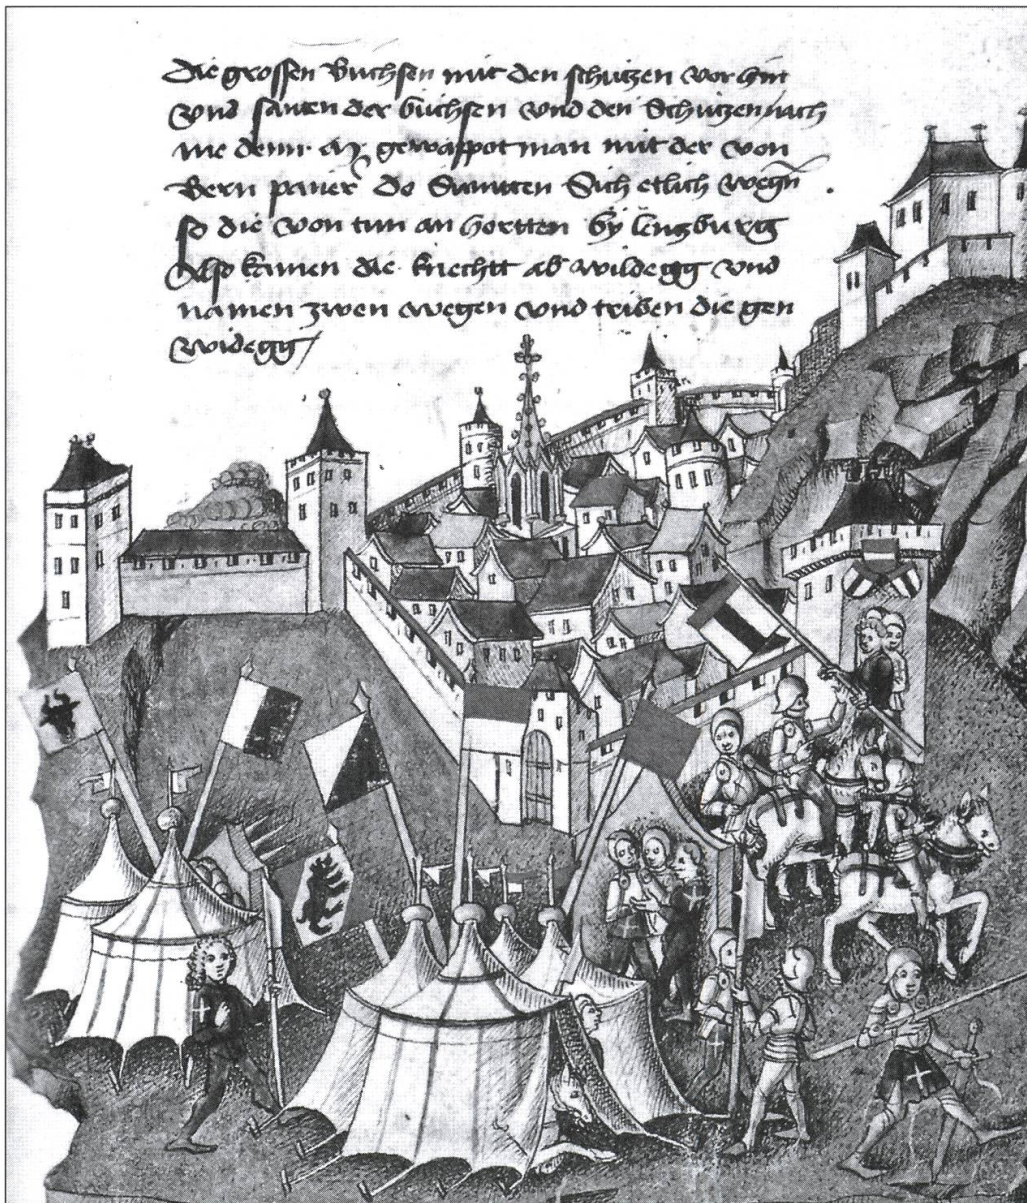 die grossen Buchsen mit den schutzen vor hin
vnd santen der buchsen vnd den Schutzen nach
me denn gewappot man mit der von
Bern paner do Sumtten Sich etlich wegn
so die von tun an hortten by lentzburg
Also kamen die knechtt ab wildegg vnd
namen zwen wegen vnd triben die gen
widegg